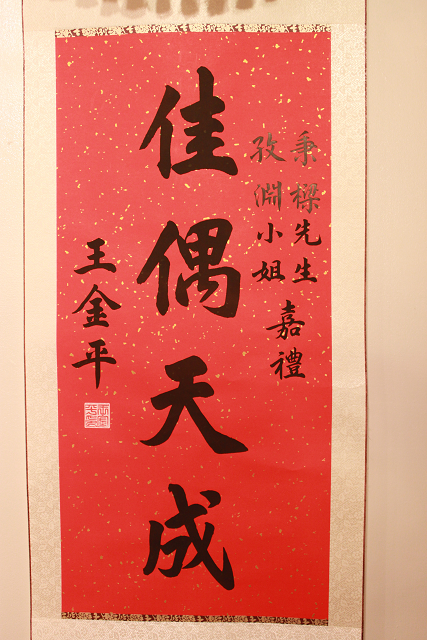 秉樑先生
孜淵小姐
嘉禮
佳偶天成
王金平